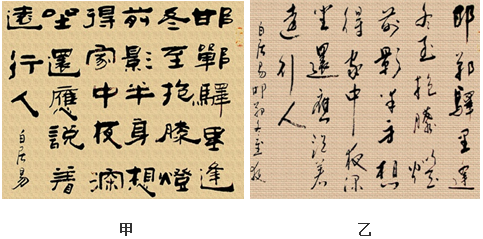 邯鄲驛里逢
冬至抱膝燈
前影半身想
得家中夜深
坐還應説著
遠行人
白居易
甲
邯鄲驛里逢
冬至抱膝燈
前影半身想
得家中夜深
坐還應説著
遠行人
白居易邯鄲冬至夜
乙